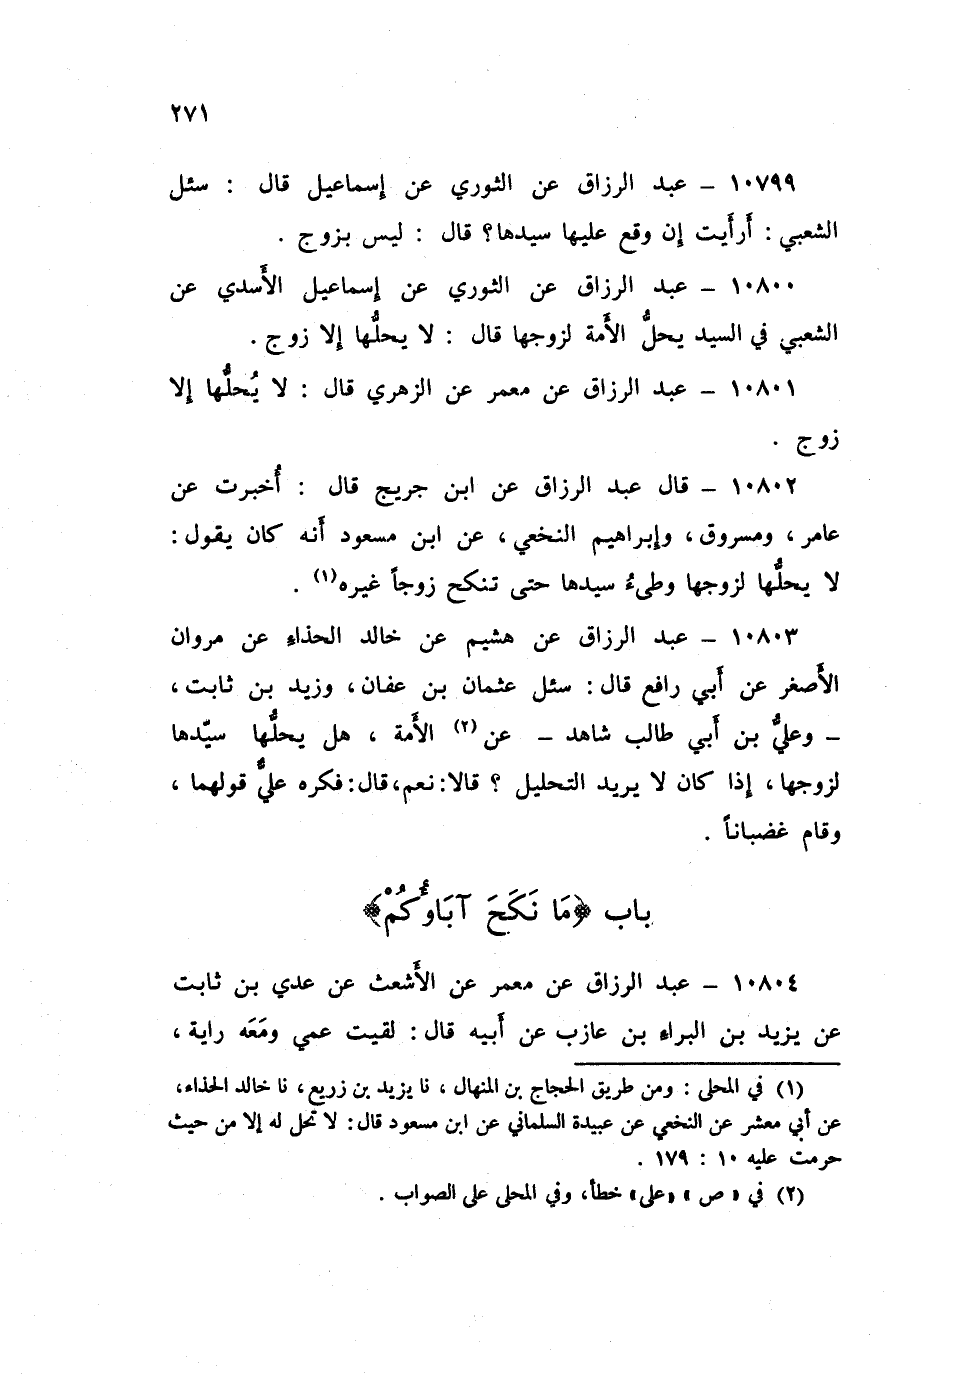 ٢٧١
١٠٧٩٩ – عبد الرزاق عن الثوري عن إسماعيل قال : سئل
الشعبي : أرأيت إن وقع عليها سيدها؟ قال : ليس بزوج .
١٠٨٠٠ – عبد الرزاق عن الثوري عن إسماعيل الأسدي عن
الشعبي في السيد يحلُّ الأمة لزوجها قال : لا يحلُّها إلا زوج .
١٠٨٠١ – عبد الرزاق عن معمر عن الزهري قال : لا يُحلُّها إلا
زوج .
١٠٨٠٢ – قال عبد الرزاق عن ابن جريج قال : أُخبرت عن
عامر ، ومسروق ، وإبراهيم النخعي ، عن ابن مسعود أنه كان يقول :
لا يحلُّها لزوجها وطيءُ سيدها حتى تنكح زوجاً غيره(١) .
١٠٨٠٣ – عبد الرزاق عن هشيم عن خالد الحذاء عن مروان
الأصغر عن أبي رافع قال : سئل عثمان بن عفان ، وزيد بن ثابت ،
– وعليُّ بن أبي طالب شاهد – عن(٢) الأمة ، هل يحلُّها سيّدها
لزوجها ، إذا كان لا يريد التحليل ؟ قالا: نعم، قال: فكره عليٌّ قولهما ،
وقام غضباناً .
باب ﴿مَا نَكَحَ آبَاؤُكُمْ﴾
١٠٨٠٤ – عبد الرزاق عن معمر عن الأشعث عن عدي بن ثابت
عن يزيد بن البراء بن عازب عن أبيه قال : لقيت عمي ومَعَه راية ،
(١) في المحلى : ومن طريق الحجاج بن المنهال ، نا يزيد بن زريع، نا خالد الحذاء،
عن أبي معشر عن النخعي عن عبيدة السلماني عن ابن مسعود قال: لا تحل له إلا من حيث
حرمت عليه ١٠ : ١٧٩ .
(٢) في « ص » «على» خطأ، وفي المحلى على الصواب .